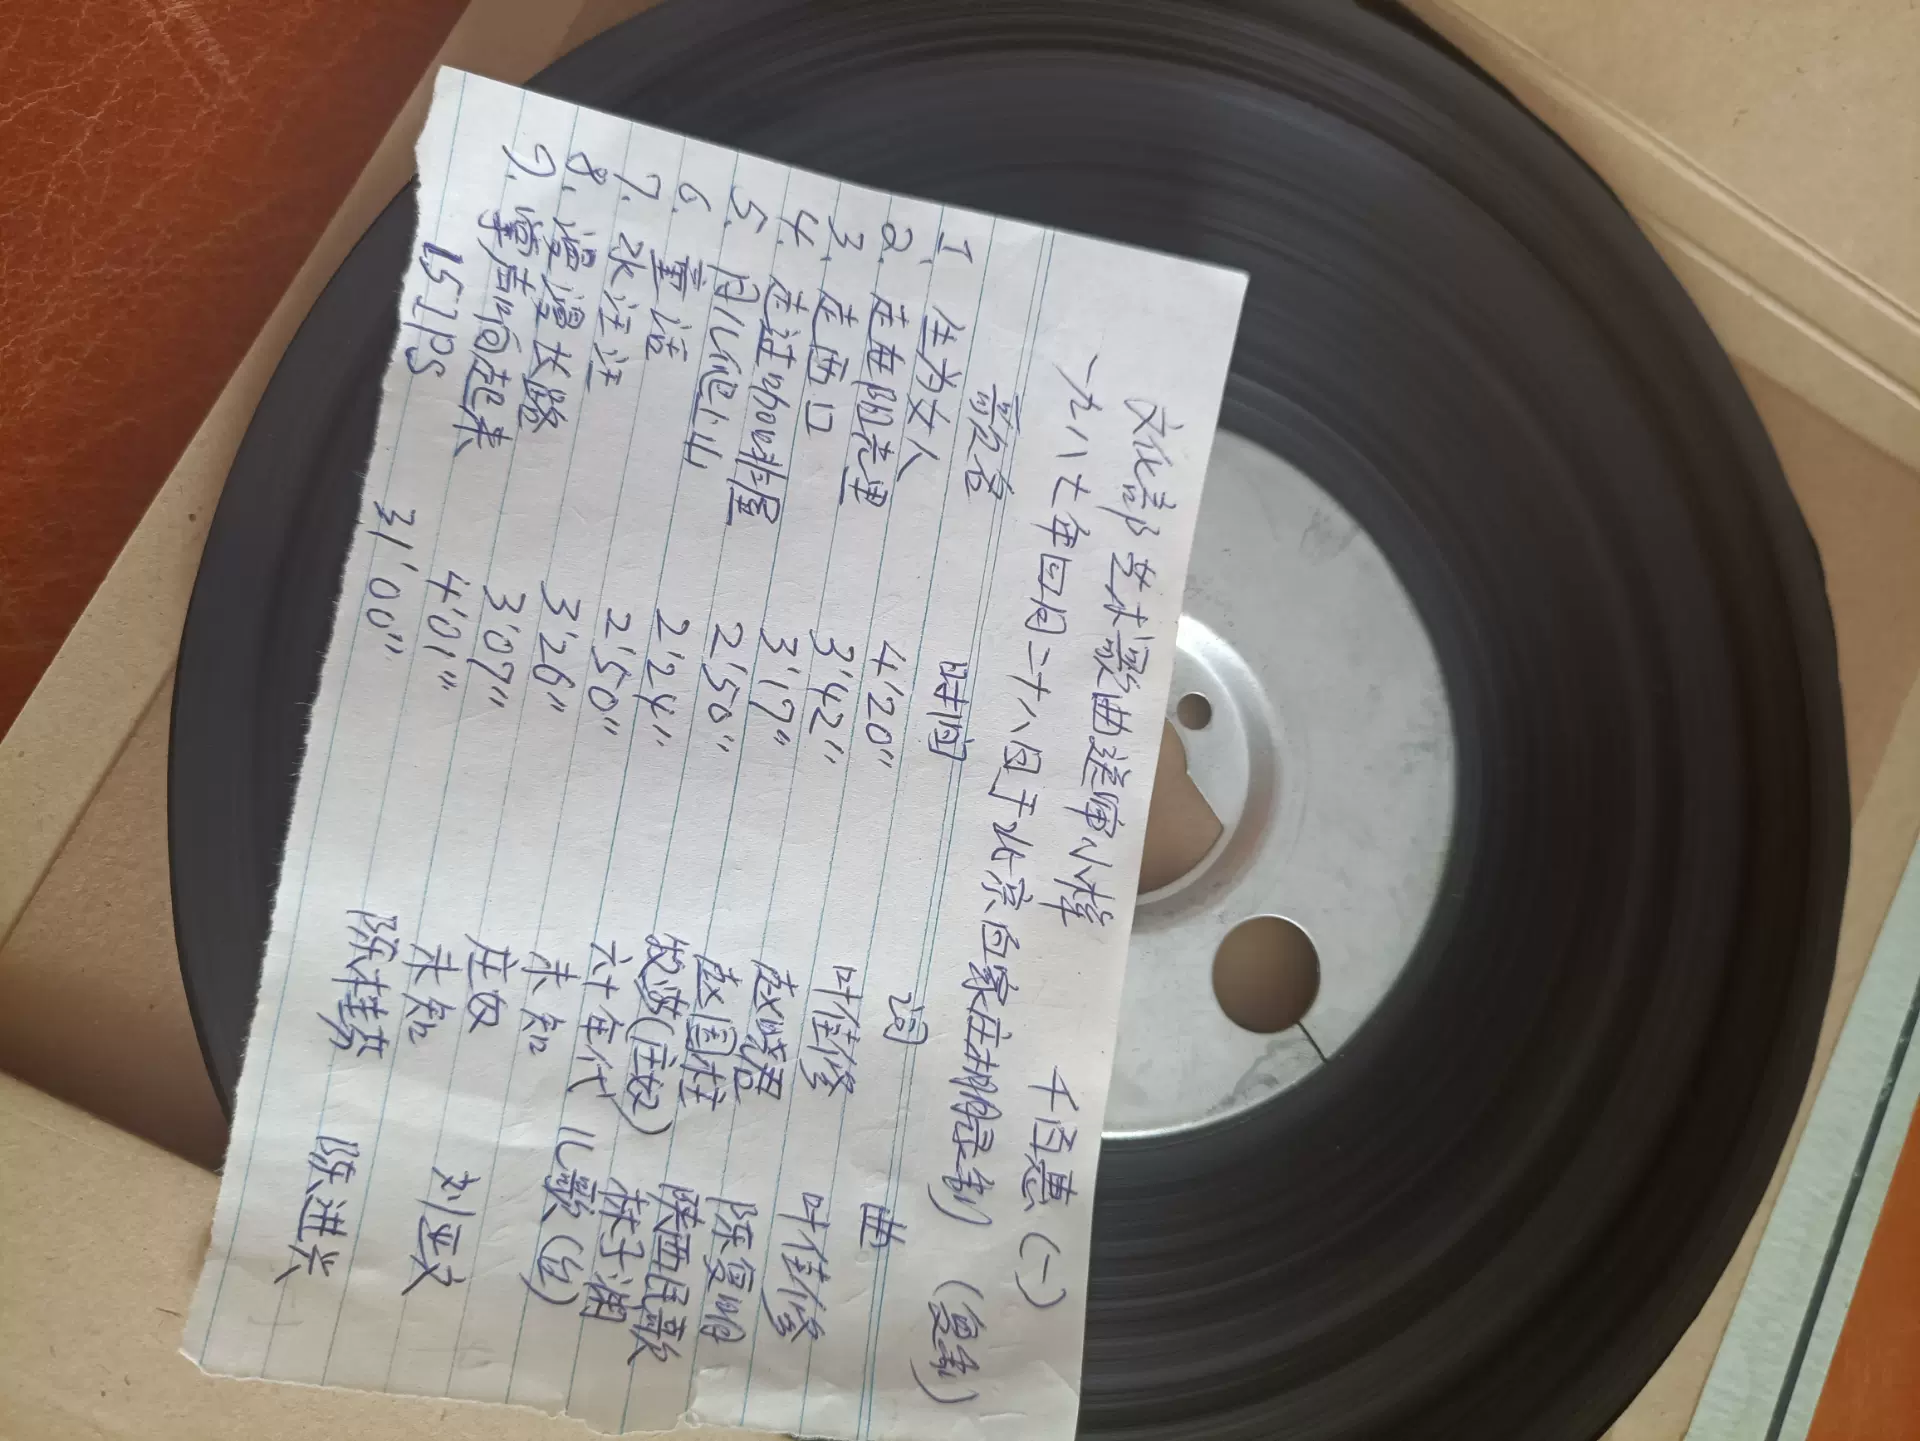 文化部艺术歌曲送审小样 千百惠(一)
一九八七年四月二十八日于北京白家庄棚录制 (复制)
歌名 时间 词 曲
1. 生为女人 4'20" 叶佳修 叶佳修
2. 走在阳光里 3'42" 赵晓君 陈复明
3. 走西口 3'17" 赵国柱 陕西民歌
4. 走过咖啡屋 2'50" 姣游(庄奴) 林子渊
5. 月儿爬上山 2'24" 六十年代 儿歌(台)
6. 童话 2'50" 未知
7. 水汪汪 3'26" 庄奴 刘亚文
8. 漫漫长路 3'07" 未知
9. 掌声响起来 4'01" 陈桂芬 陈进兴
15IPS 31'00"